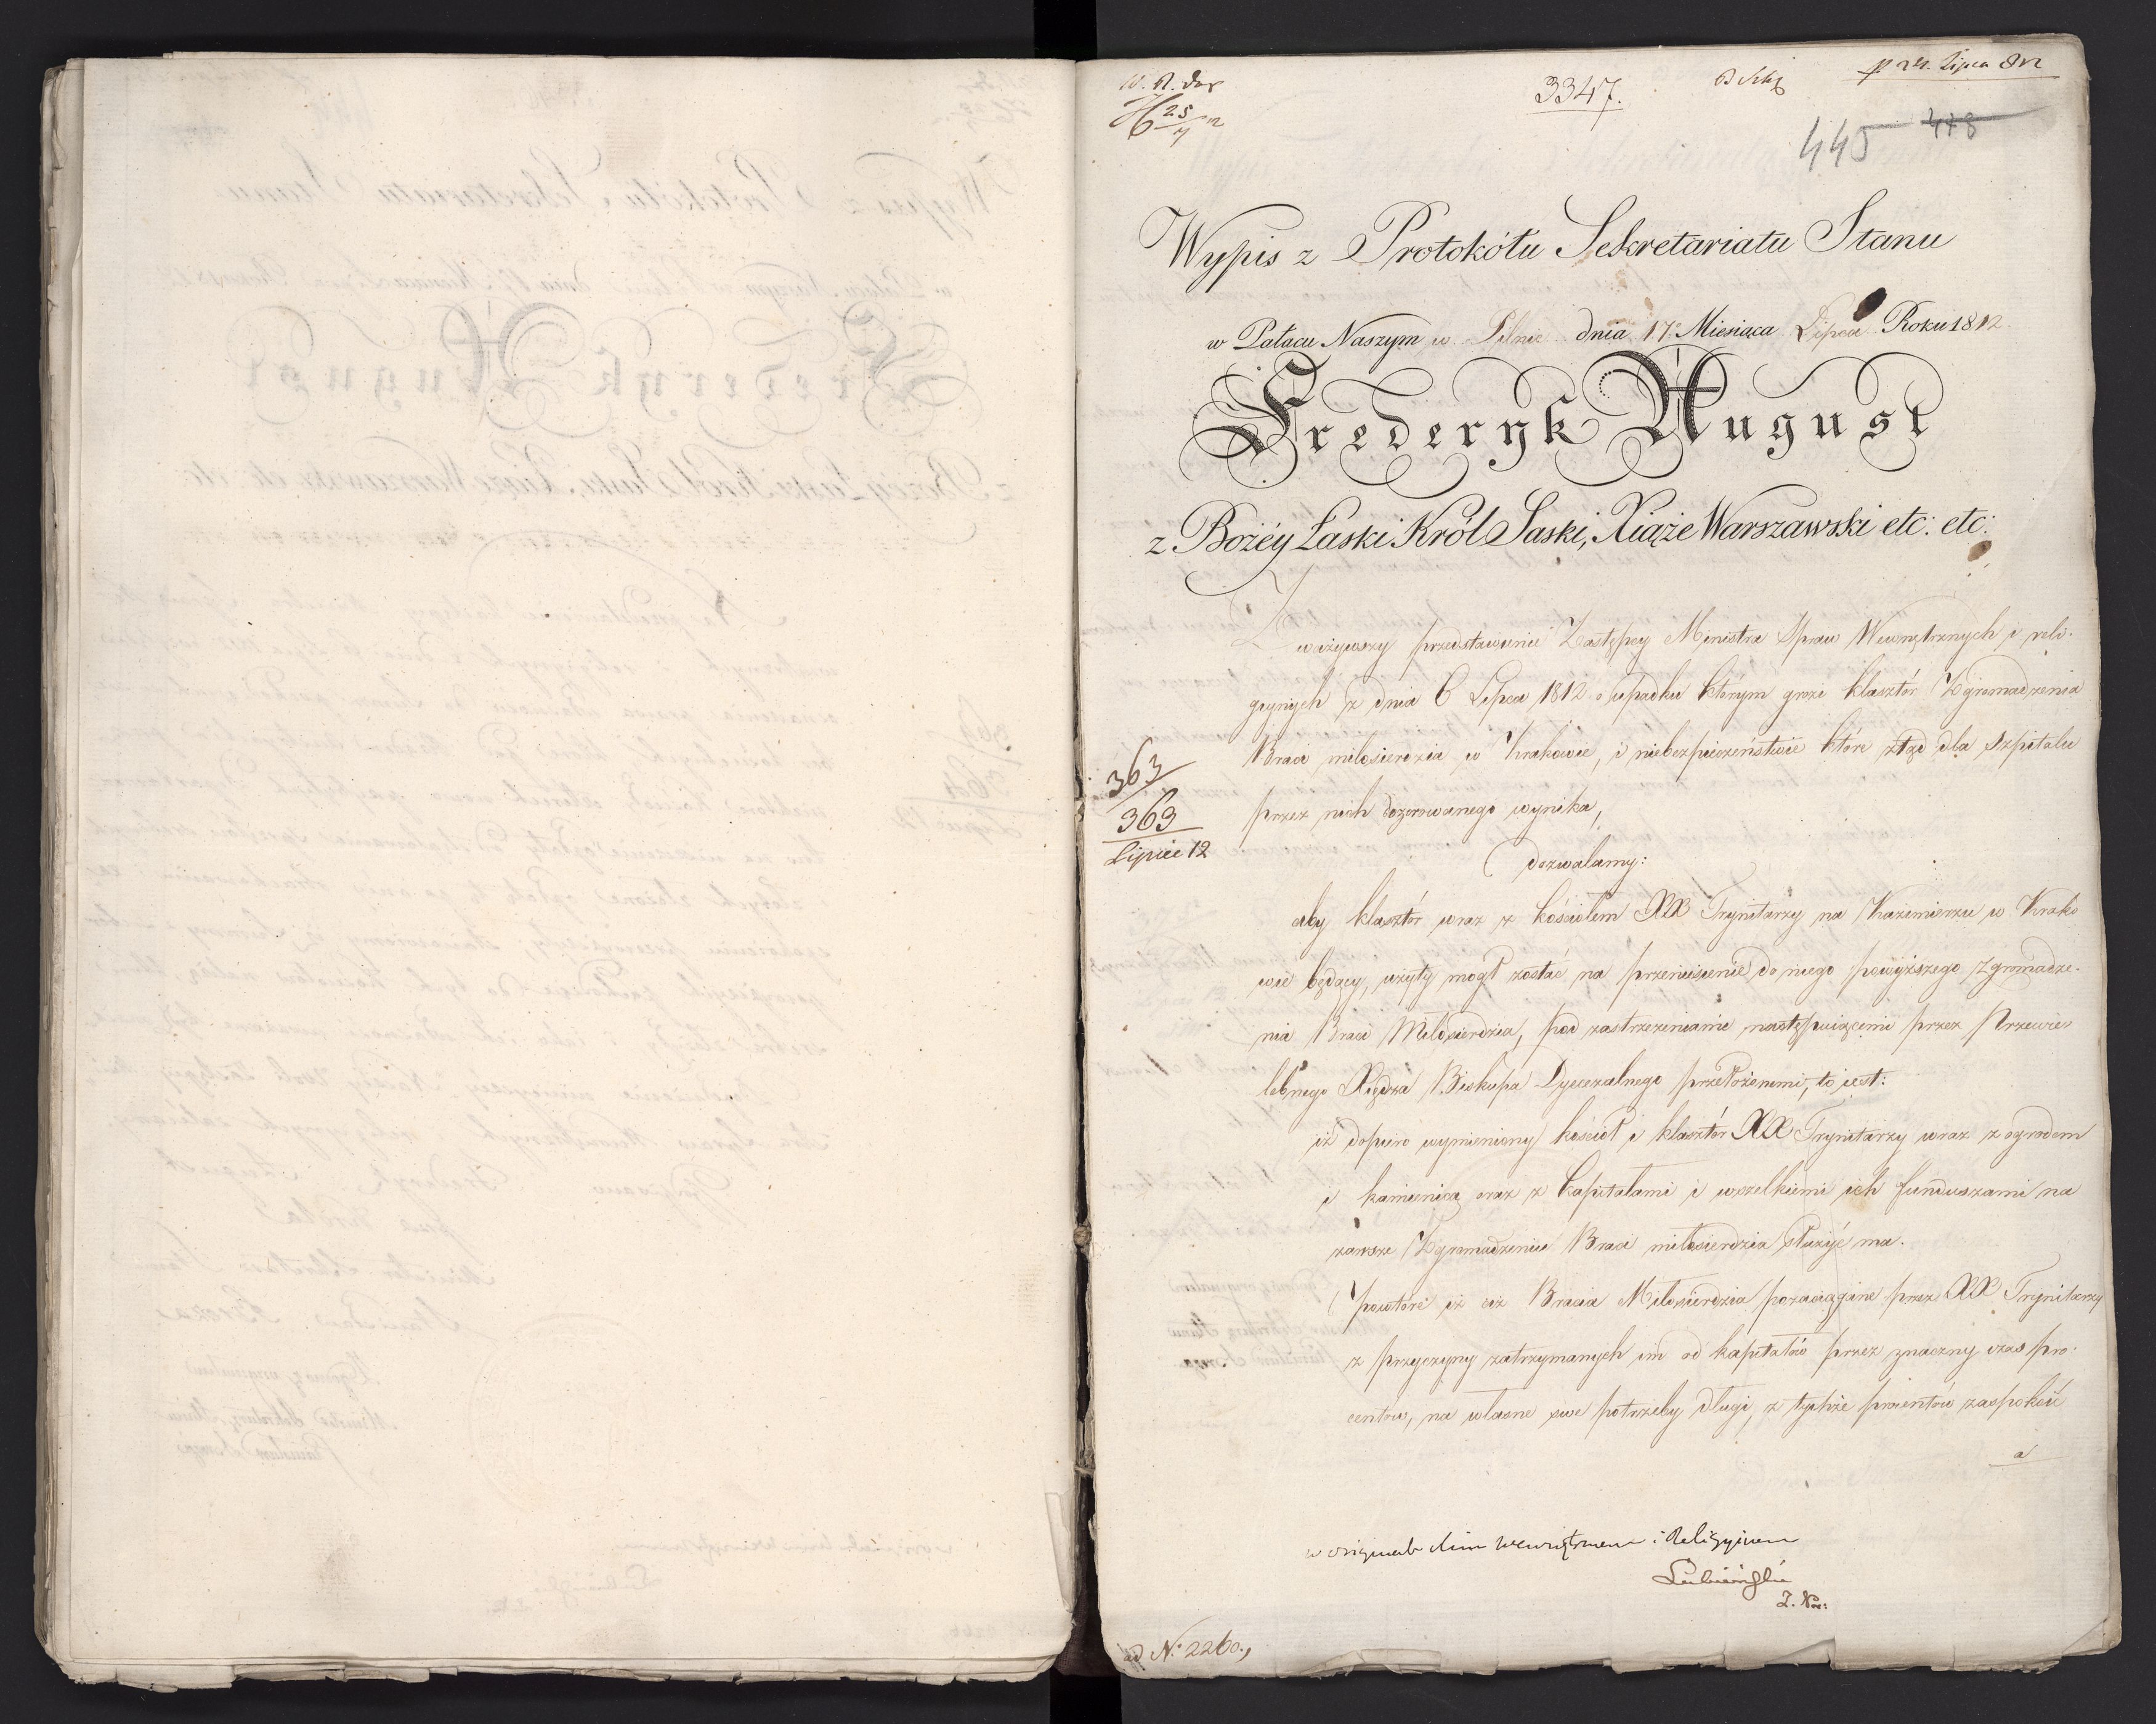 3347.
p 24. Lipca 812
445 448
25
Wypis z Protokółu Sekretariatu Stanu
w Pałacu Naszym w Pilnic dnia 17. Miesiąca Lipca Roku 1812
Frederyk August
z Bożéy Łaski Król Saski, Xiąże Warszawski etc: etc:
Zważywszy przedstawienie Zastępcy Ministra Spraw Wewnętrznych i reli-
giynych z dnia 6 Lipca 1812 o upadku którym grozi klasztór Zgromadzenia
Braci miłosierdzia w Krakowie, i niebezpieczeństwie które ztąd dla Szpitalu
przez nich dozorowanego wynika,
363
363
Lipiec 12
dozwalamy:
aby klasztór wraz z kościołem XX Trynitarzy na Kazimierzu w Krako
wie będący, użyty mógł zostać na przeniesienie do niego powyższego Zgromadze-
nia Braci Miłosierdzia, pod zastrzeżeniami następuiącemi przez Przewie-
lebnego Xiędza Biskupa Dyecezalnego przełożonemi, to iest:
iż dopiero wymieniony kościół i klasztór XX Trynitarzy wraz z ogrodem
i kamienicą oraz z kapitałami i wszelkiemi ich funduszami na
zawsze Zgromadzeniu Braci miłosierdzia służyć ma.
powtóre iż ciż Bracia Miłosierdzia pozaciągane przez XX Trynitarzy
z przyczyny zatrzymanych im od kapitałów przez znaczny czas pro-
centów, na własne swe potrzeby długi, z tychże procentów zaspokoić
a
w originale Min Wewnętrznem i Religyinem
ad N: 2260.,